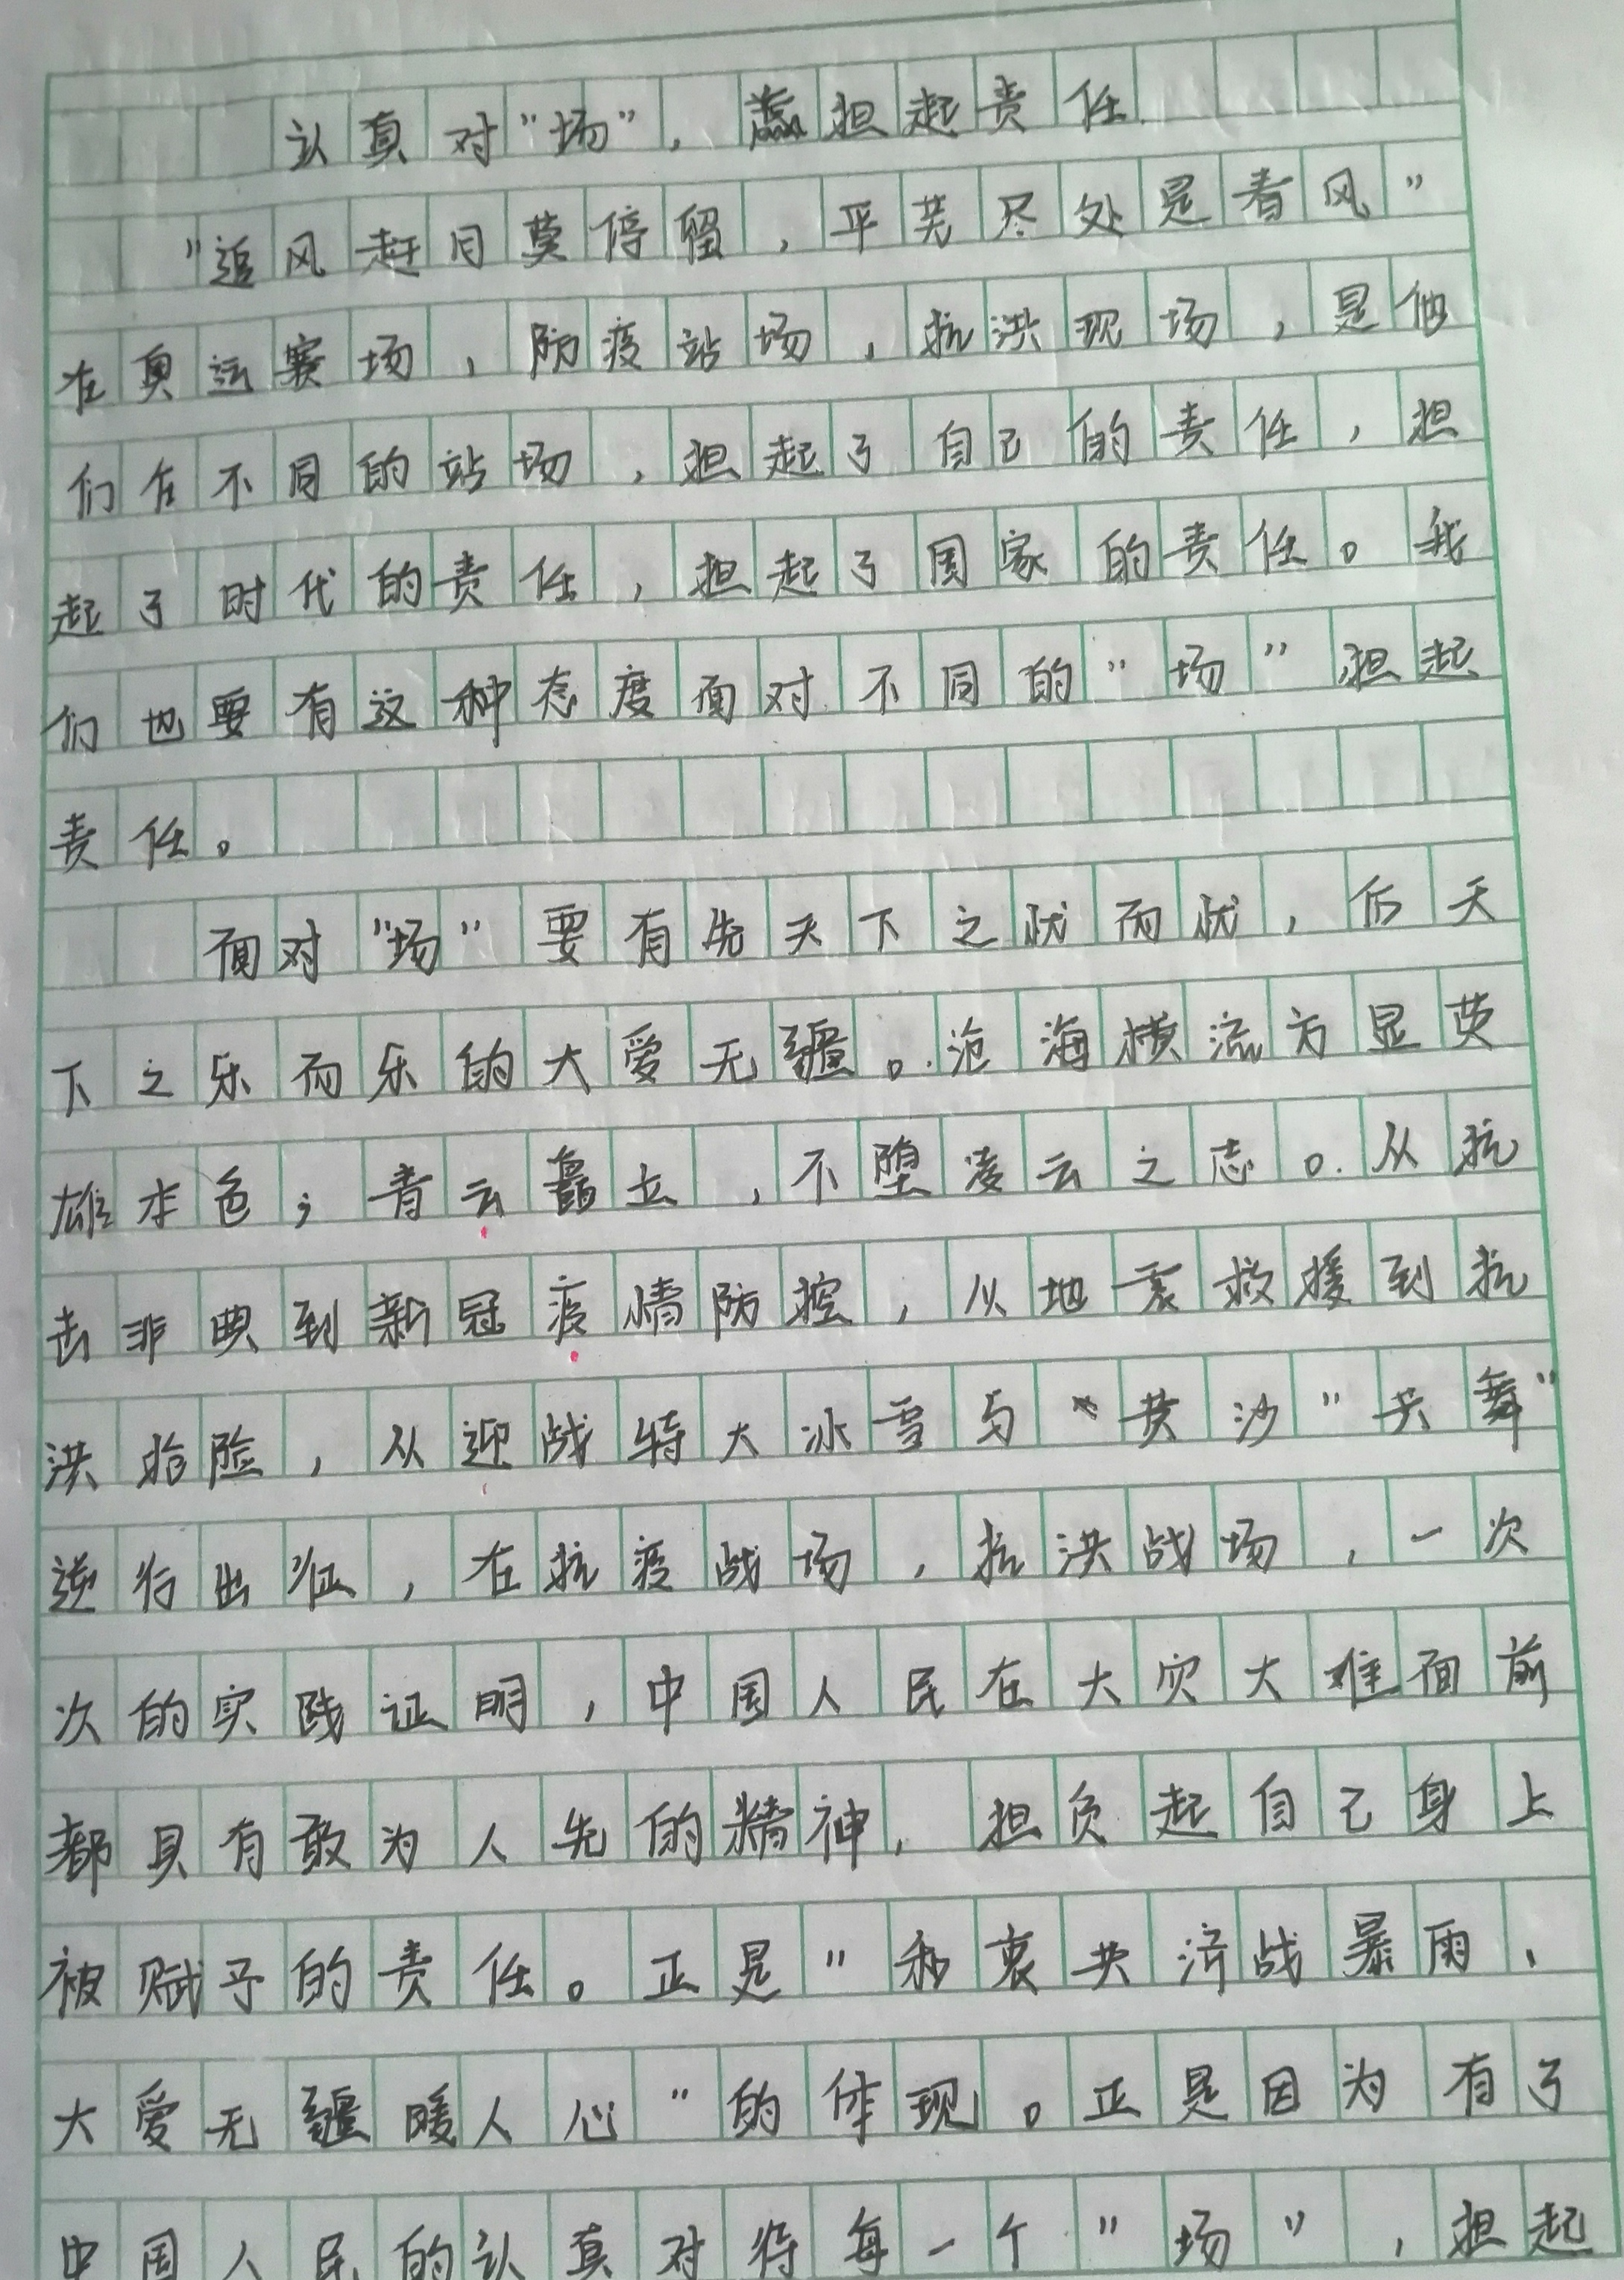 认真对“场”，担起责任
“追风赶月莫停留，平芜尽处是春风”
在奥运赛场，防疫站场，抗洪现场，是他
们在不同的站场，担起了自己的责任，担
起了时代的责任，担起了国家的责任。我
们也要有这种态度面对不同的“场”担起
责任。
面对“场”要有先天下之忧而忧，后天
下之乐而乐的大爱无疆。沧海横流方显英
雄本色；青云矗立，不堕凌云之志。从抗
击非典到新冠疫情防控，从地震救援到抗
洪抢险，从迎战特大冰雪与“黄沙”共舞”
逆行出征，在抗疫战场，抗洪战场，一次
次的实践证明，中国人民在大灾大难面前
都具有敢为人先的精神，担负起自己身上
被赋予的责任。正是“和衷共济战暴雨，
大爱无疆暖人心”的体现。正是因为有了
中国人民的认真对待每一个“场”，担起